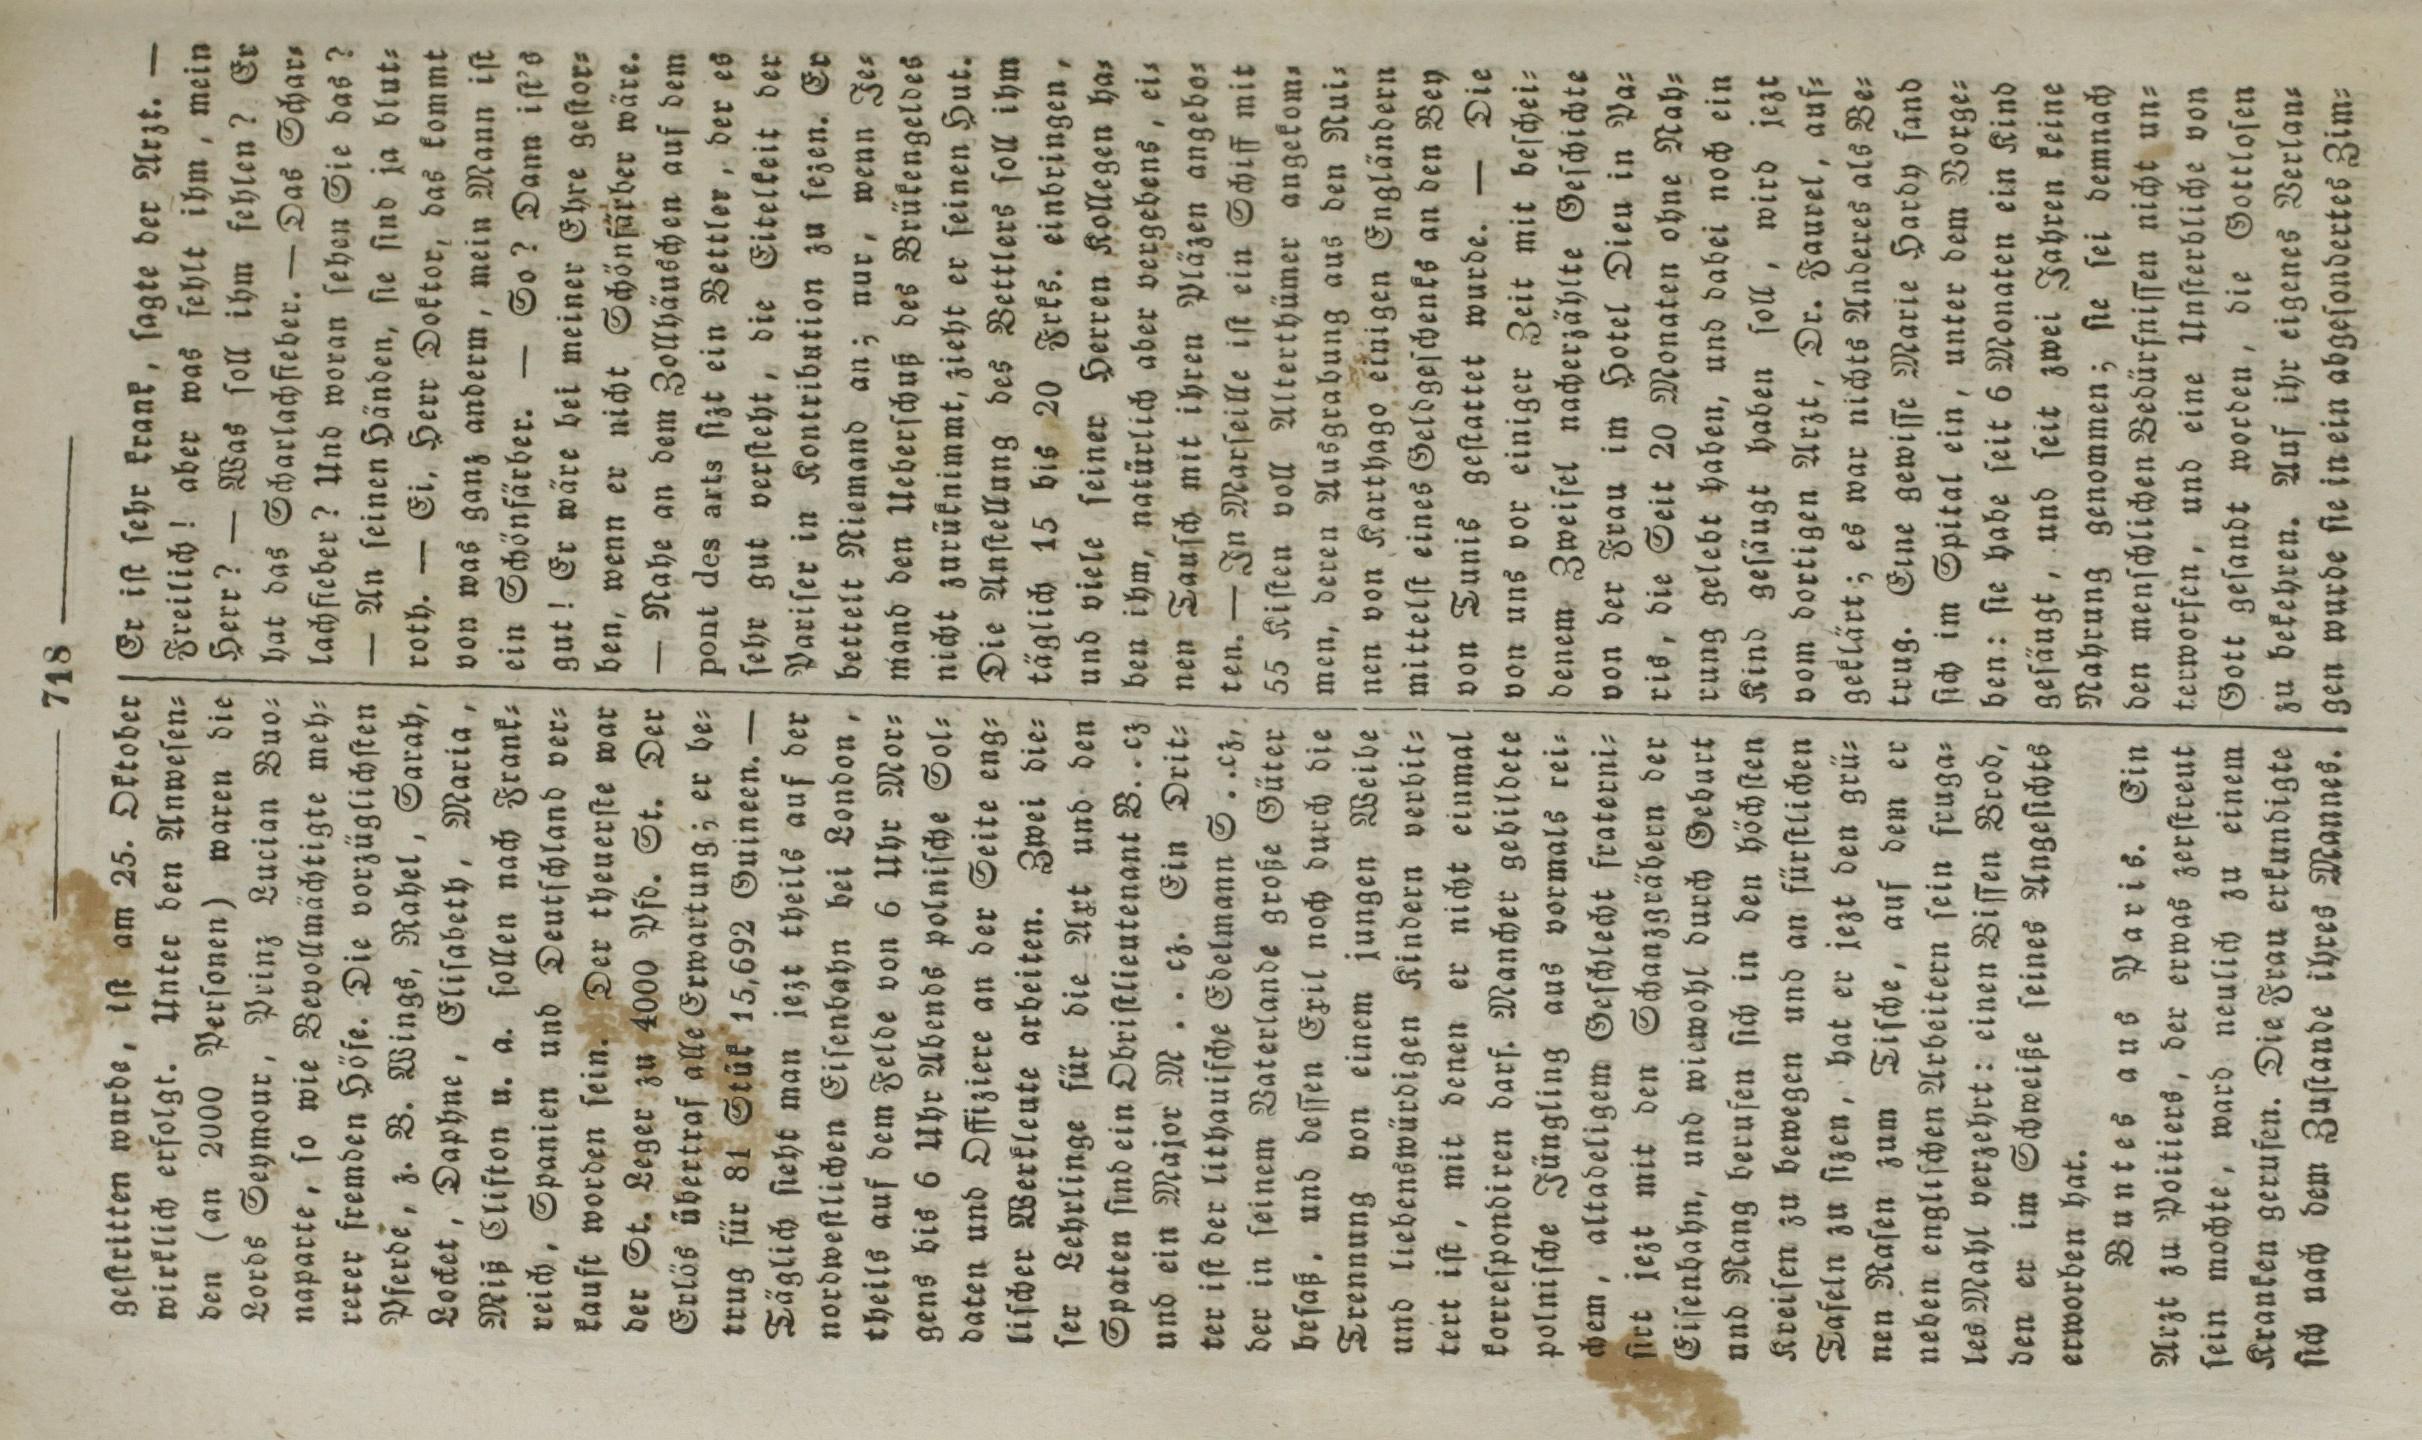 718
gestritten wurde, ist am 25. Oktober
wirklich erfolgt. Unter den Anwesen-
den (an 2000 Personen) waren die
Lords Seymour, Prinz Lucian Buo-
naparte, so wie Bevollmächtigte meh-
rerer fremden Höfe. Die vorzüglichsten
Pferde, z. B. Wings, Rahel, Sarah,
Locket, Daphne, Elisabeth, Maria,
Miß Clifton u. a. sollen nach Frank-
reich, Spanien und Deutschland ver-
kauft worden sein. Der theuerste war
der St. Leger zu 4000 Pfd. St. Der
Erlös übertraf alle Erwartung; er be-
trug für 81 Stük 15,692 Guineen. —
Täglich sieht man jezt theils auf der
nordwestlichen Eisenbahn bei London,
theils auf dem Felde von 6 Uhr Mor-
gens bis 6 Uhr Abends polnische Sol-
daten und Offiziere an der Seite eng-
lischer Werkleute arbeiten. Zwei die-
ser Lehrlinge für die Axt und den
Spaten sind ein Obristlieutenant B. . cz
und ein Major M . . cz. Ein Drit-
ter ist der lithauische Edelmann S . . cz,
der in seinem Vaterlande große Güter
besaß, und dessen Exil noch durch die
Trennung von einem jungen Weibe
und liebenswürdigen Kindern verbit-
tert ist, mit denen er nicht einmal
korrespondiren darf. Mancher gebildete
polnische Jüngling aus vormals rei-
chem, altadeligem Geschlecht fraterni-
sirt jezt mit den Schanzgräbern der
Eisenbahn, und wiewohl durch Geburt
und Rang berufen sich in den höchsten
Kreisen zu bewegen und an fürstlichen
Tafeln zu sizen, hat er jezt den grü-
nen Rasen zum Tische, auf dem er
neben englischen Arbeitern sein fruga-
les Mahl verzehrt: einen Bissen Brod,
den er im Schweiße seines Angesichts
erworben hat.
Buntes aus Paris. Ein
Arzt zu Poitiers, der etwas zerstreut
sein mochte, ward neulich zu einem
Kranken gerufen. Die Frau erkundigte
sich nach dem Zustande ihres Mannes.
Er ist sehr krank, sagte der Arzt. —
Freilich! aber was fehlt ihm, mein
Herr? — Was soll ihm fehlen? Er
hat das Scharlachfieber. — Das Schar-
lachfieber? Und woran sehen Sie das?
— An seinen Händen, sie sind ja blut-
roth. — Ei, Herr Doktor, das kommt
von was ganz anderm, mein Mann ist
ein Schönfärber. — So? Dann ist's
gut! Er wäre bei meiner Ehre gestor-
ben, wenn er nicht Schönfärber wäre.
— Nahe an dem Zollhäuschen auf dem
pont des arts sizt ein Bettler, der es
sehr gut versteht, die Eitelkeit der
Pariser in Kontribution zu sezen. Er
bettelt Niemand an; nur, wenn Je-
mand den Ueberschuß des Brükengeldes
nicht zurüknimmt, zieht er seinen Hut.
Die Anstellung des Bettlers soll ihm
täglich 15 bis 20 Frks. einbringen,
und viele seiner Herren Kollegen ha-
ben ihm, natürlich aber vergebens, ei-
nen Tausch mit ihren Pläzen angebo-
ten. — In Marseille ist ein Schiff mit
55 Kisten voll Alterthümer angekom-
men, deren Ausgrabung aus den Rui-
nen von Karthago einigen Engländern
mittelst eines Geldgeschenks an den Bey
von Tunis gestattet wurde. — Die
von uns vor einiger Zeit mit beschei-
denem Zweifel nacherzählte Geschichte
von der Frau im Hotel Dieu in Pa-
ris, die Seit 20 Monaten ohne Nah-
rung gelebt haben, und dabei noch ein
Kind gesäugt haben soll, wird jezt
vom dortigen Arzt, Dr. Faurel, auf-
geklärt; es war nichts Anderes als Be-
trug. Eine gewisse Marie Hardy fand
sich im Spital ein, unter dem Vorge-
ben: sie habe seit 6 Monaten ein Kind
gesäugt, und seit zwei Jahren keine
Nahrung genommen; sie sei demnach
den menschlichen Bedürfnissen nicht un-
terworfen, und eine Unsterbliche von
Gott gesandt worden, die Gottlosen
zu bekehren. Auf ihr eigenes Verlan-
gen wurde sie in ein abgesondertes Zim-